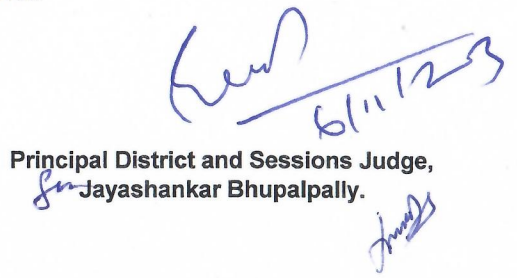 6/11/23
Principal District and Sessions Judge,
Jayashankar Bhupalpally.